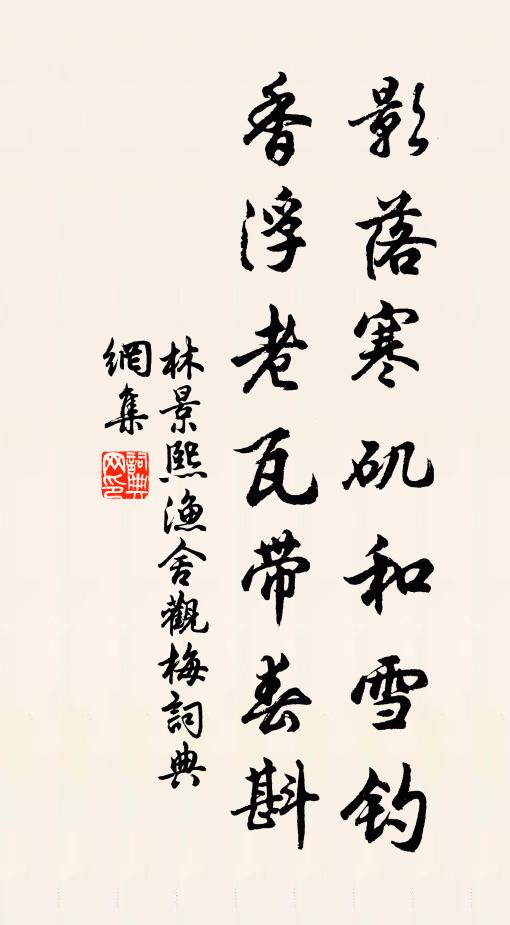 影落寒矶和雪钓
香浮老瓦带春斟
林景熙渔舍觀梅詞典
網集
詞典
网印